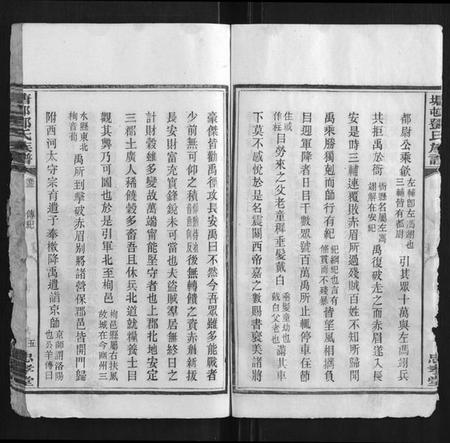 都尉公乘歙
左輔卽左馮翊也
三輔皆有都尉
引其眾十萬與左馮翊兵
共拒禹於衙
衙縣名屬左馮
翊解在安紀
禹復破走之而赤眉遂入長
安是時三輔連覆敗赤眉所過殘賊百姓不知所歸聞
禹乘勝獨剋而師行有紀
紀綱紀也言有
條貫而不殘暴
皆望風相攜負
目迎軍降者日目千數眾號百萬禹所止輒停車住節
目勞來之父老童稚垂髮戴白
垂髮童幼也
戴白父老也
滿其車
下莫不感悅於是名震關西帝嘉之數賜書褒美諸將
豪傑皆勸禹徑攻長安禹曰不然今吾眾雖多能戰者
少前無可仰之積
後無轉饋之資赤眉新拔
長安財富充實鋒銳未可當也夫盜賊羣居無終日之
計財穀雖多變故萬端甯能堅守者也上郡北地安定
三郡土廣人稀饒穀多畜吾且休兵北道就糧養士目
觀其弊乃可圖也於是引軍北至栒邑
栒邑縣屬右扶風
故城在今豳州三
水縣東北
禹所到擊破赤眉別將諸營保郡邑皆開門歸
附西河太守宗育遣子奉檄降禹遣詣京師
京師謂洛陽
也公羊傳曰
傳紀
五
忠孝堂